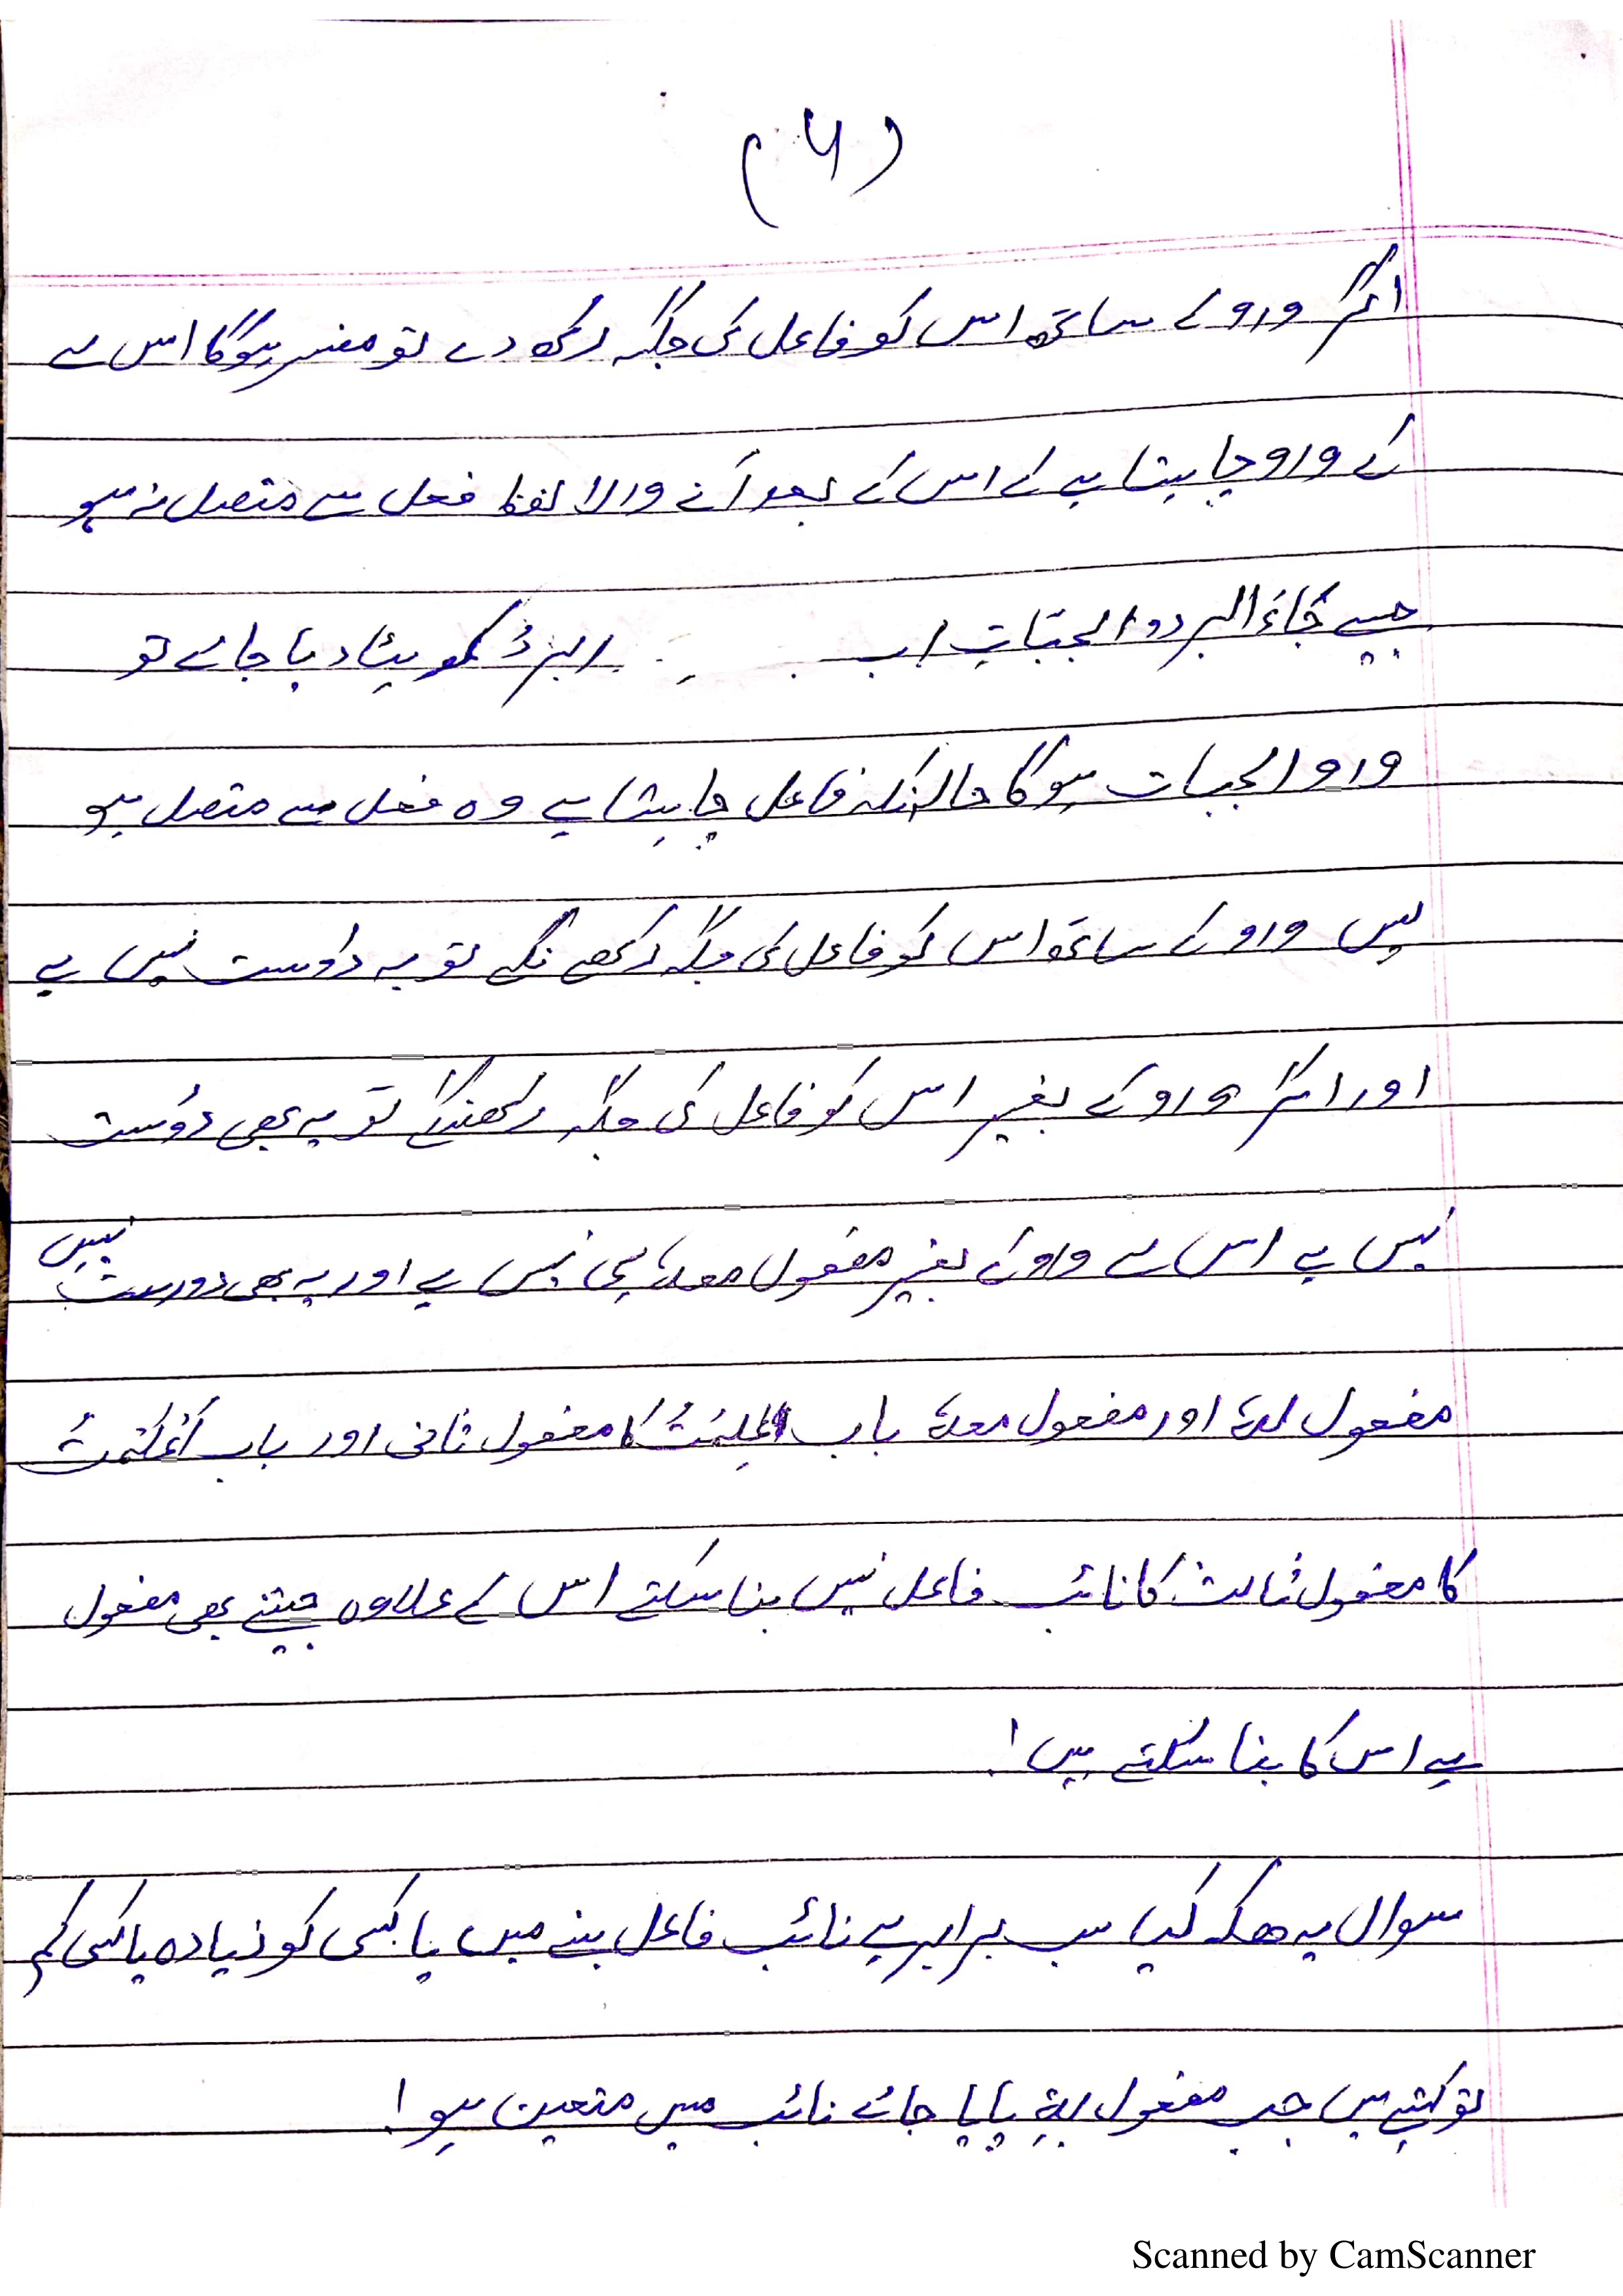 (۶)
اگر واو کے ساتھ اس کو فاعل کی جگہ رکھ دے تو مضر ہوگا اس لے
کے واو چاہتا ہے کے اس کے بعد آنے والا لفظ فعل سے متصل نہ ہو
جیسے جَاءَ البرد والجبّاتِ اب البردُ کو ہٹا دیا جاے تو
واو الجبات ہوگا حالانکہ فاعل چاہتا ہے وہ فعل سے متصل ہو
پس واو کے ساتھ اس کو فاعل کی جگہ رکھے نگے تو یہ داوست نہیں ہے
اور اگر واو کے بغیر اس کو فاعل کی جگہ رکھینگے تو یہ بھی دوست
نہیں ہے اس لے واو کے بغیر مفعول معہٗ ہی نہیں ہے اور یہ بھی دورست نہیں
مفعول لہٗ اور مفعول معہٗ باب علِمْتُ کا مفعول ثانی اور باب اَعْلَمْتُ
کا مفعول ثالث کا نائب فاعل نہیں بنا سکتے اس کے علاوہ جیتنے بھی مفعول
ہے اس کا بنا سکتے ہیں!
سوال یہ ھیکہ کیا سب برابر ہے نائب فاعل بننے میں یا کسی کو زیادہ یا کسی کم
تو کہتے ہیں جب مفعول بہٖ پایا جائے نائب میں متعین ہو!
Scanned by CamScanner